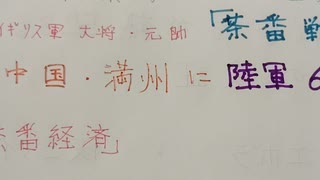 ギリス軍 大将・元帥 「茶番戦
中国・満州に 陸軍 6
茶番経済」